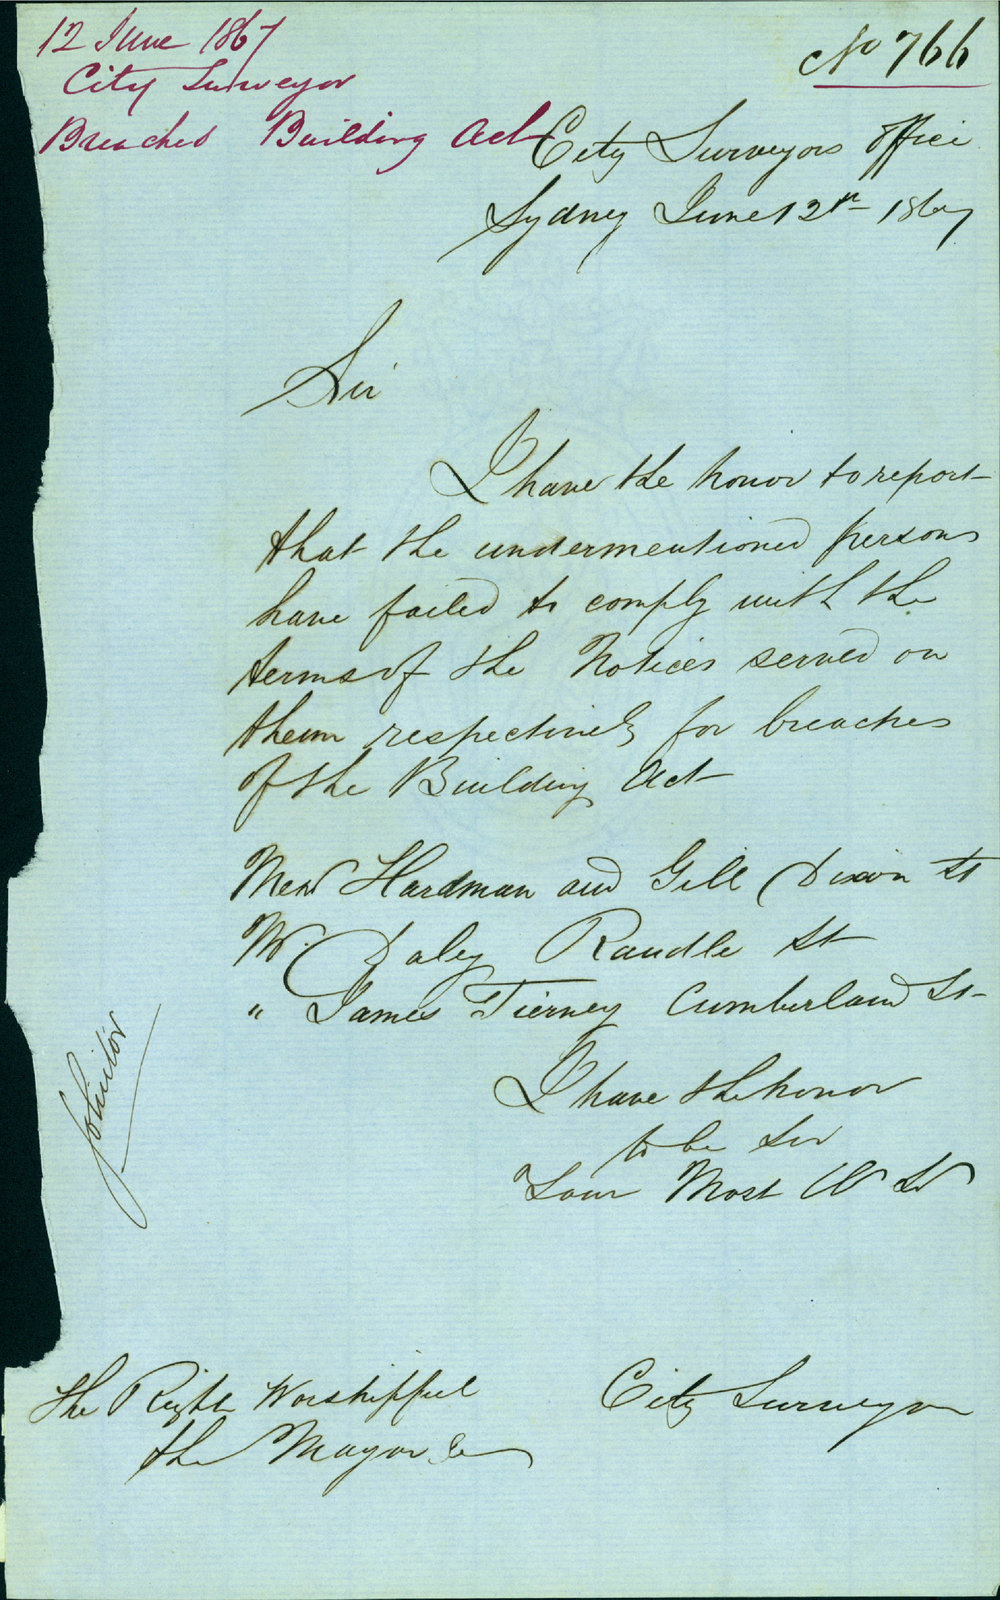 12 June 1867
City Surveyor
Breaches Building Act
No 766
City Surveyors Office
Sydney June 12th 1867
Sir
I have the honor to report
that the undermentioned persons
have failed to comply with the
terms of the Notices served on
them respectively for breaches
of the Building Act
Messrs Hardman and Gill Dixon St
Mr. Daley Randle St
" James Tierney Cumberland St
I have the honor
to be Sir
Your Most
Solicitor
City Surveyor
The Right Worshipful
the Mayor &c